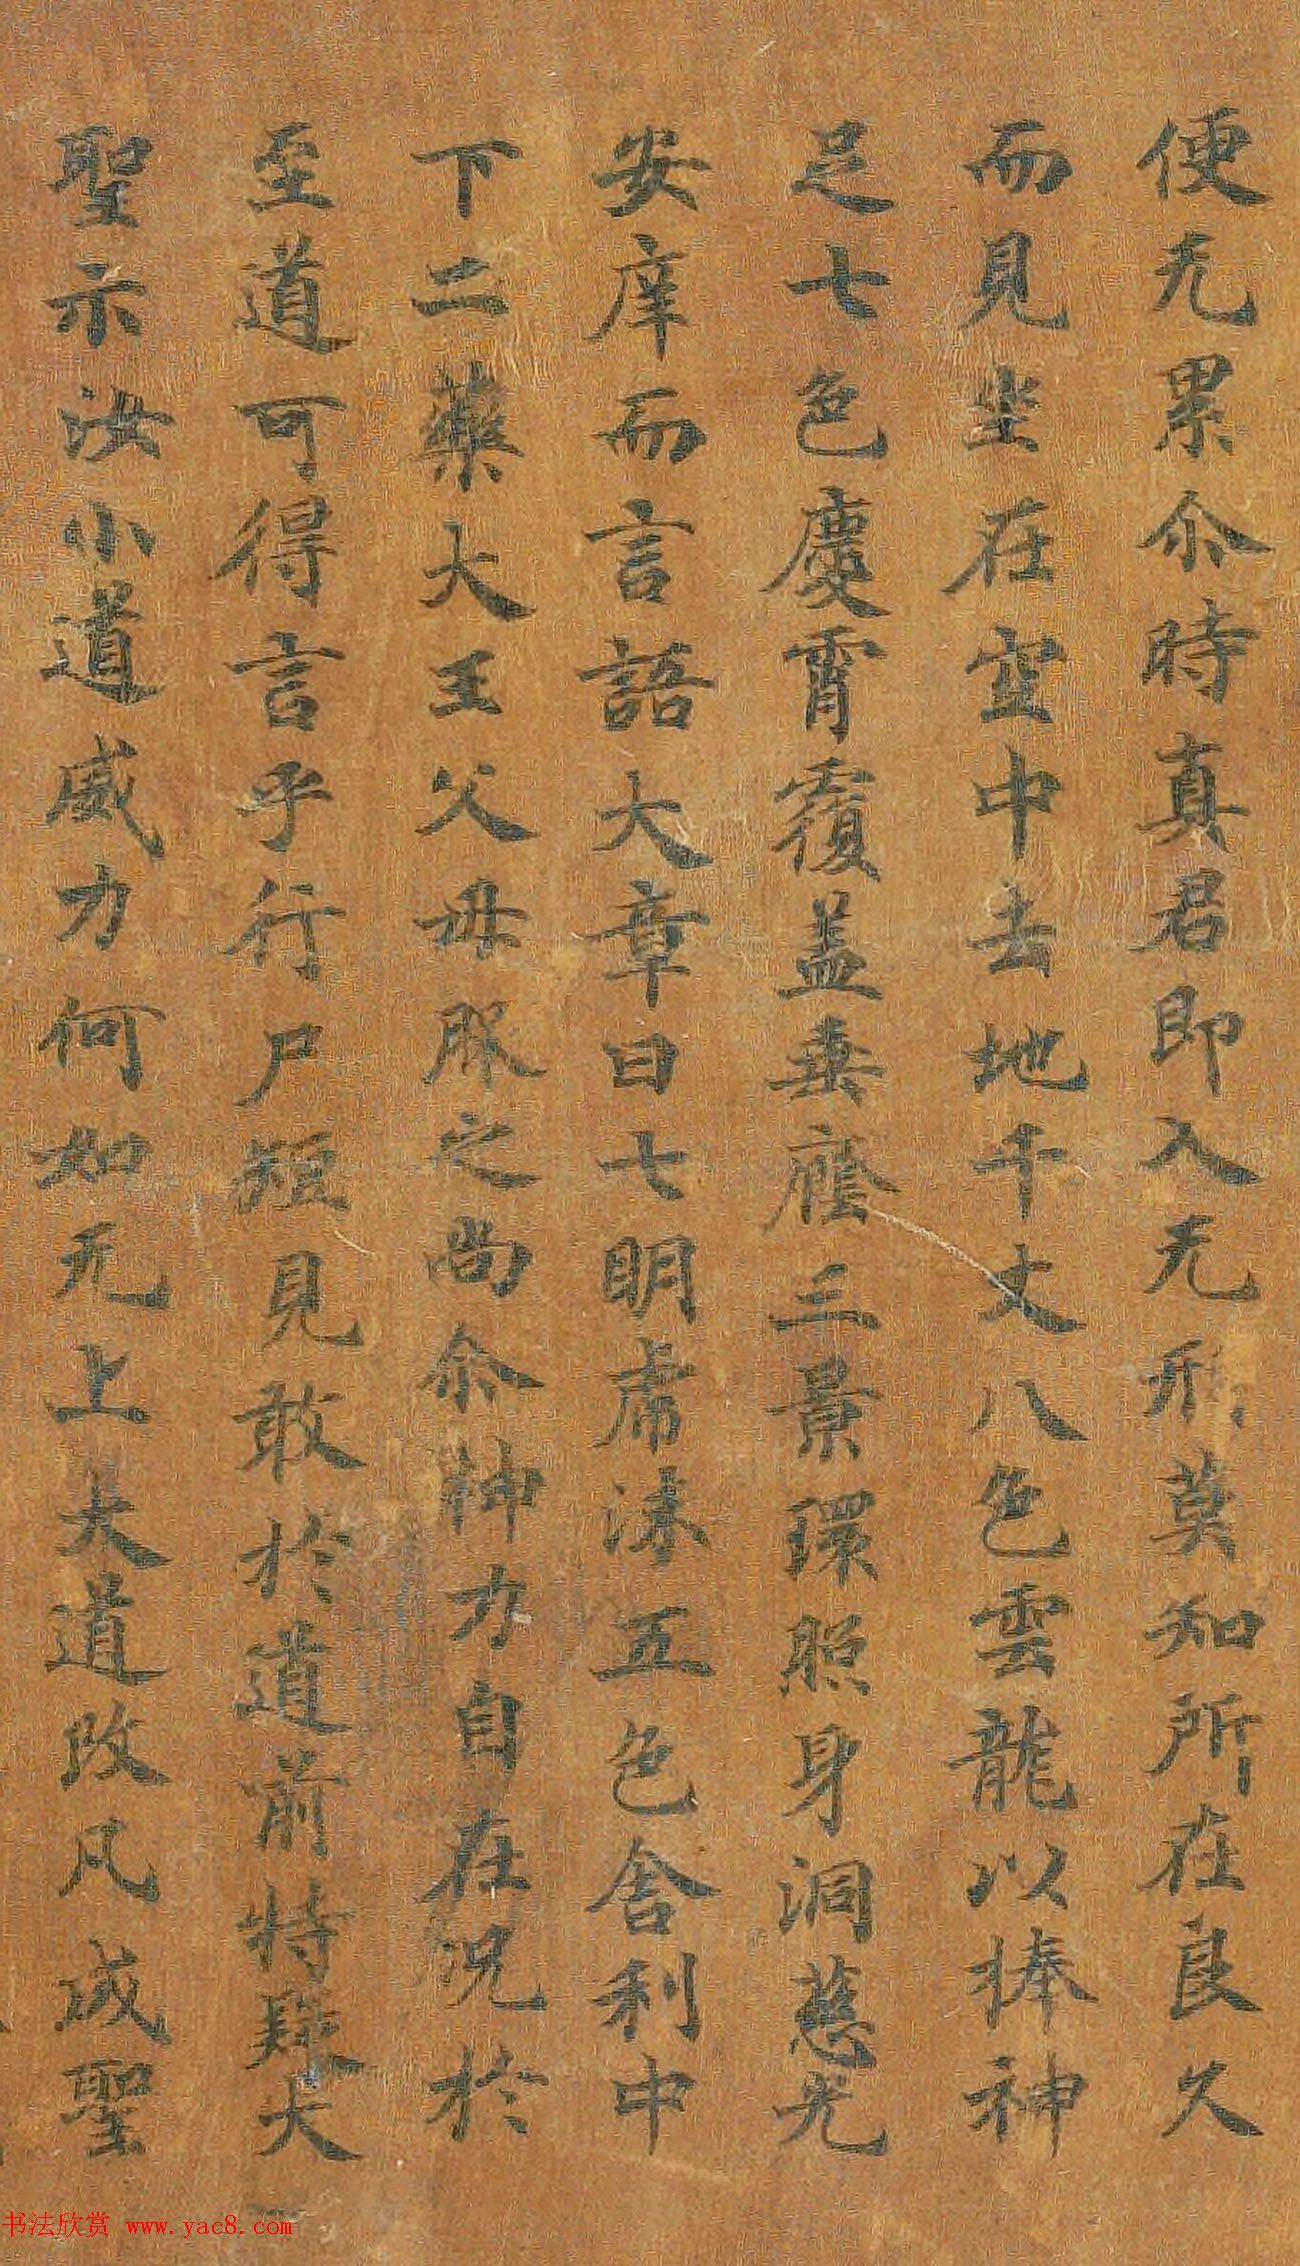 便无累尒時真君即入无形莫知所在良久
而見坐在空中去地千丈八色雲龍以捧神
足七色慶霄覆蓋垂䕃三景環照身洞慈光
安庠而言語大章曰七明席沫五色舍利中
下二藥大王父母服之尚尒神力自在況於
至道可得言乎行尸短見敢於道前特疑大
聖示汝小道威力何如无上大道改凡成聖
书法欣赏 www.yac8.com